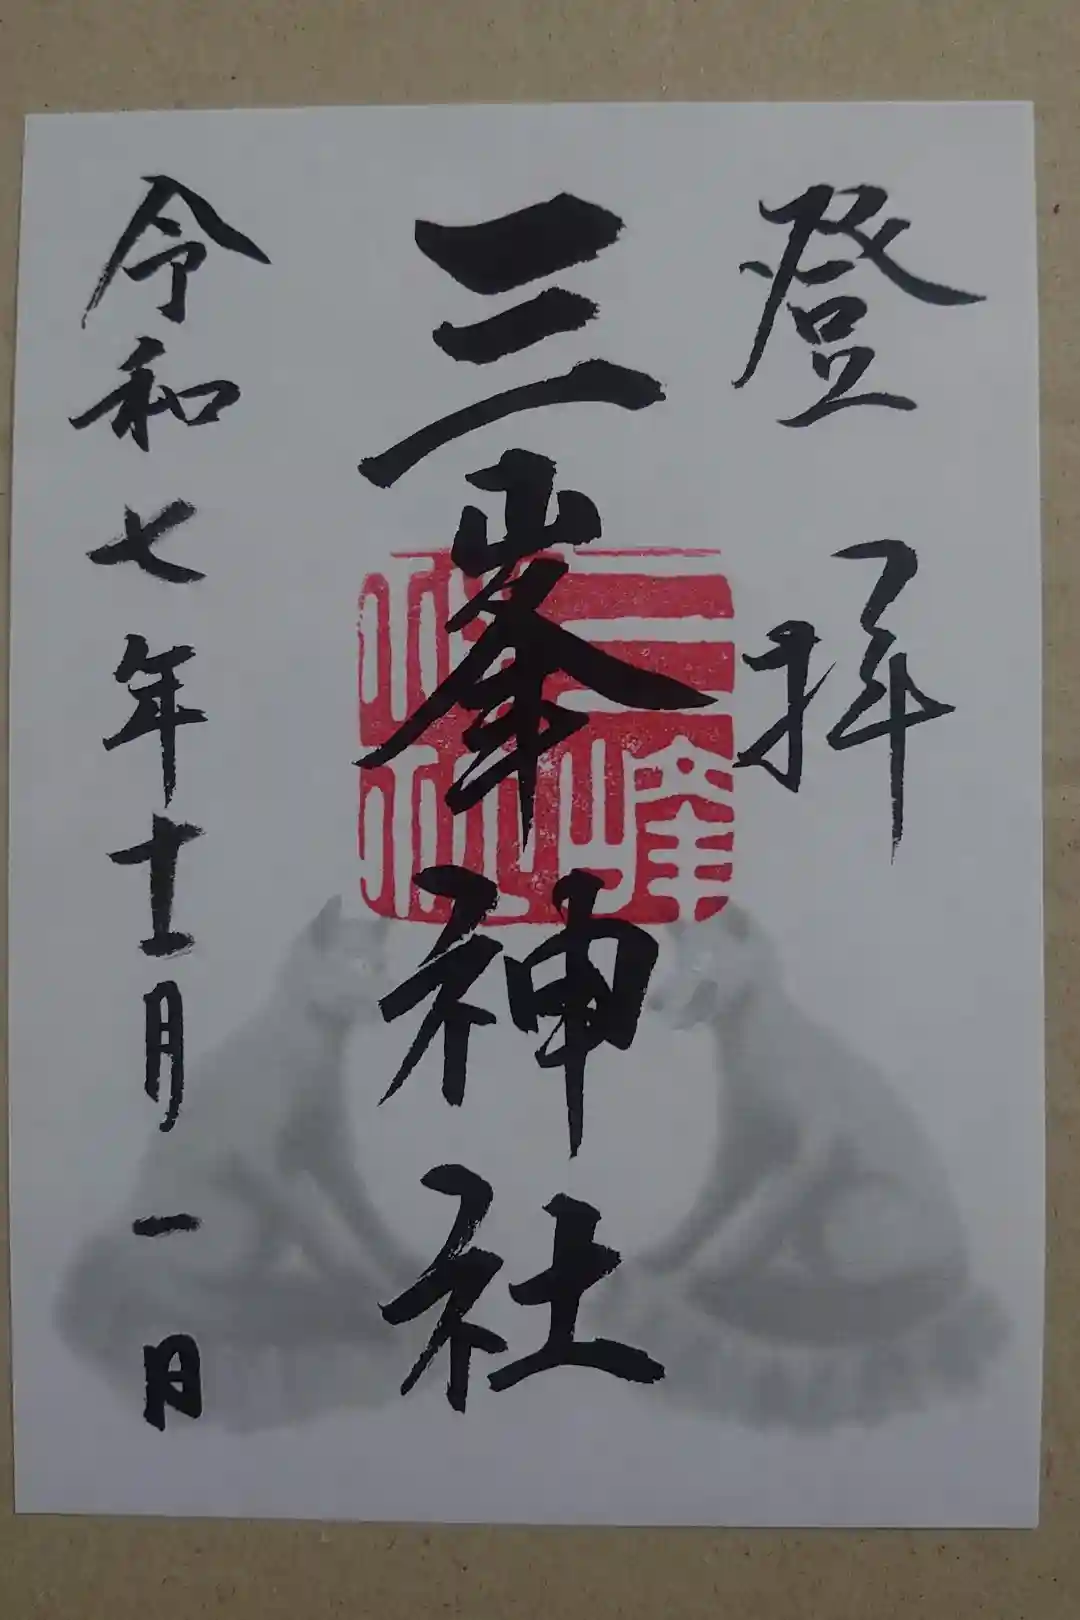 登拝
三峯神社
令和七年十一月一日
三峰
神社